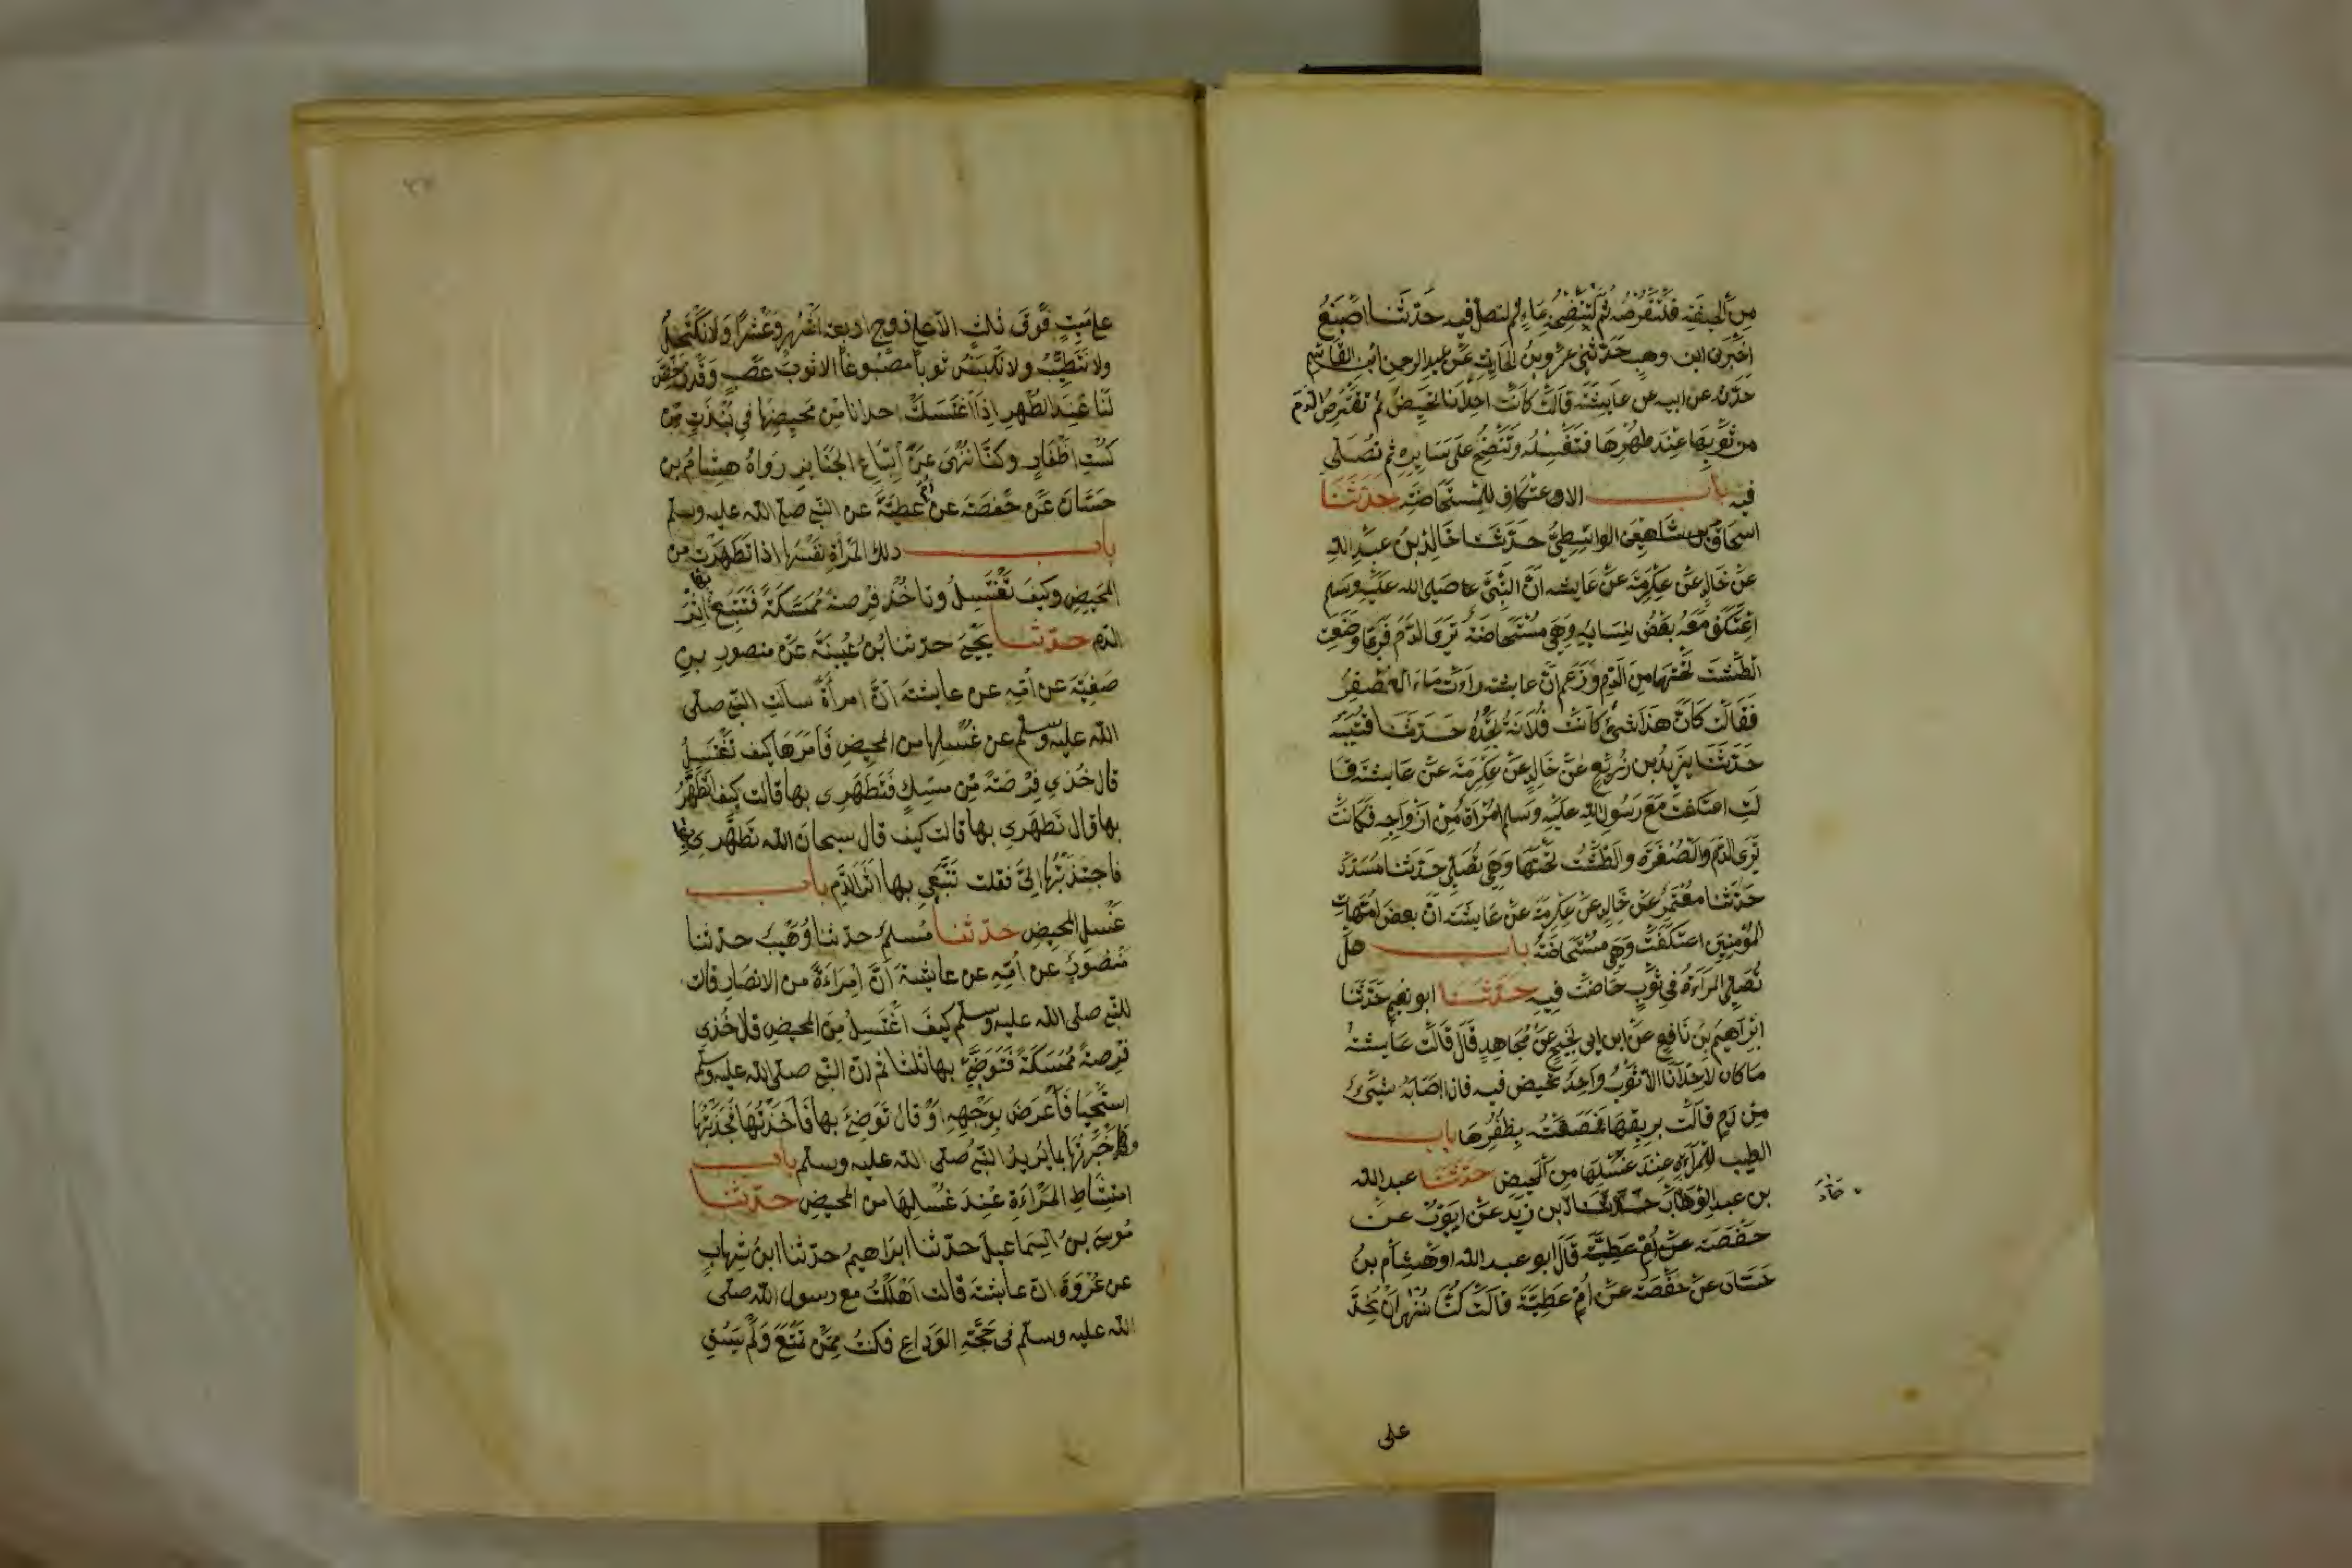 من الحيضة فلتقرصه ثم لتنضحه بماء ثم لتصل فيه حدثنا اصبغ
اخبرني ابن وهب حدثني عمرو بن الحارث عن عبد الرحمن ابن القاسم
حدثه عن ابيه عن عايشة قالت كانت احدانا تحيض ثم تقترص الدم
من ثوبها عند طهرها فتغسله وتنضح على سايره ثم تصلي
فيه باب الاعتكاف للمستحاضة حدثنا
اسحاق بن شاهين الواسطي حدثنا خالد بن عبد الله
عن خالد عن عكرمة عن عايشه ان النبي صلى الله عليه وسلم
اعتكف معه بعض نسايه وهي مستحاضة ترى الدم فربما وضعت
الطشت تحتها من الدم وزعم ان عايشه رات ماء العصفر
فقالت كان هذا شئ كانت فلانة تجده حدثنا قتيبة
حدثنا يزيد بن زريع عن خالد عن عكرمة عن عايشة قا
لت اعتكفت مع رسول الله عليه وسلم امراة من ازواجه فكانت
ترى الدم والصفرة والطشت تحتها وهي تصلي حدثنا مسدد
حدثنا معتمر عن خالد عن عكرمة عن عايشة ان بعض امهات
المؤمنين اعتكفت وهي مستحاضة باب هل
تصلي المراءة في ثوب حاضت فيه حدثنا ابو نعيم حدثنا
ابراهيم بن نافع عن ابن ابي نجيح عن مجاهد قال قالت عايشة
ما كان لاحدانا الا ثوب واحد تحيض فيه فاذا اصابه شيئ
من دم قالت بريقها فصعته بظفرها باب
الطيب للمراءة عند غسلها من المحيض حدثنا عبد الله
بن عبد الوهاب حدثنا بن زيد عن ايوب عن
حماد
حفصة عن ام عطية قال ابو عبد الله او هشام بن
حسان عن حفصة عن ام عطية قالت كنا ننهى ان نحد
على
على ميت فوق ثلث الا على زوج اربعة اشهر وعشرا ولا نكتحل
ولا نتطيب ولا نلبس ثوبا مصبوغا الا ثوب عصب وقد رخص
لنا عند الطهر اذا اغتسلت احدانا من محيضها في نبذة من
كست اظفار وكنا ننهى عن اتباع الجنايز رواه هشام بن
حسان عن حفصة عن ام عطية عن النبي صلى الله عليه وسلم
باب دلك المرأة نفسها اذا تطهرت من
المحيض وكيف تغتسل وتاخذ فرصة ممسكة فتتبع بها اثر
الدم حدثنا يحيى حدثنا بن عيينة عن منصور بن
صفية عن امه عن عايشة ان امرأة سالت النبي صلى
الله عليه وسلم عن غسلها من المحيض فامرها كيف تغتسل
قال خذي فرصة من مسك فتطهري بها قالت كيف اتطهر
بها قال تطهري بها قالت كيف قال سبحان الله تطهري بها
فاجتذبتها الي فقلت تتبعي بها اثر الدم باب
غسل المحيض حدثنا مسلم حدثنا وهيب حدثنا
منصور عن امه عن عايشة ان امراءة من الانصار قالت
للنبي صلى الله عليه وسلم كيف اغتسل من المحيض قال خذي
فرصة ممسكة فتوضئي بها ثلثا ثم ان النبي صلى الله عليه وسلم
استحيا فاعرض بوجهه او قال توضئ بها فاخذتها فجذبتها
فاخبرتها بما يريد النبي صلى الله عليه وسلم باب
امتشاط المراءة عند غسلها من المحيض حدثنا
موسى بن اسماعيل حدثنا ابراهيم حدثنا ابن شهاب
عن عروة ان عايشة قالت اهللت مع رسول الله صلى
الله عليه وسلم في حجة الوداع فكنت ممن تمتع ولم يسق